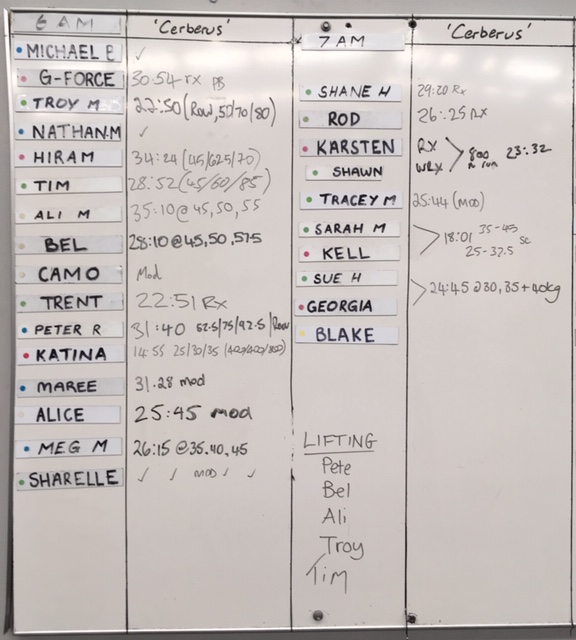 6 AM 'Cerberus'
MICHAEL P ✓
G-FORCE 30:54 rx PB
TROY M 22:50 (Row, 50/70/80)
NATHAN.M ✓
HIRAM 34:24 (45/62.5/70)
TIM 28:52 (45/60/85)
ALI M 35:10 @ 45,50,55
BEL 28:10 @ 45,50,57.5
CAMO Mod
TRENT 22:51 Rx
PETER R 31:40 52.5/75/92.5/Row
KATINA 14:55 25/30/35
MAREE 31.28 mod
ALICE 25:45 mod
MEG M 26:15 @ 35.40.45
SHARELLE ✓ ✓ MOD ✓ ✓
7 AM 'Cerberus'
SHANE H 29:20 Rx
ROD 26:25 RX
KARSTEN RX
SHAWN WRX
800 m run 23:32
TRACEY M 25:44 (MOD)
SARAH M
KELL
18:01 35-45 sc
25-32.5
SUE H
GEORGIA
24:45 @ 30,35+40kg
BLAKE
LIFTING
Pete
Bel
Ali
Troy
Tim